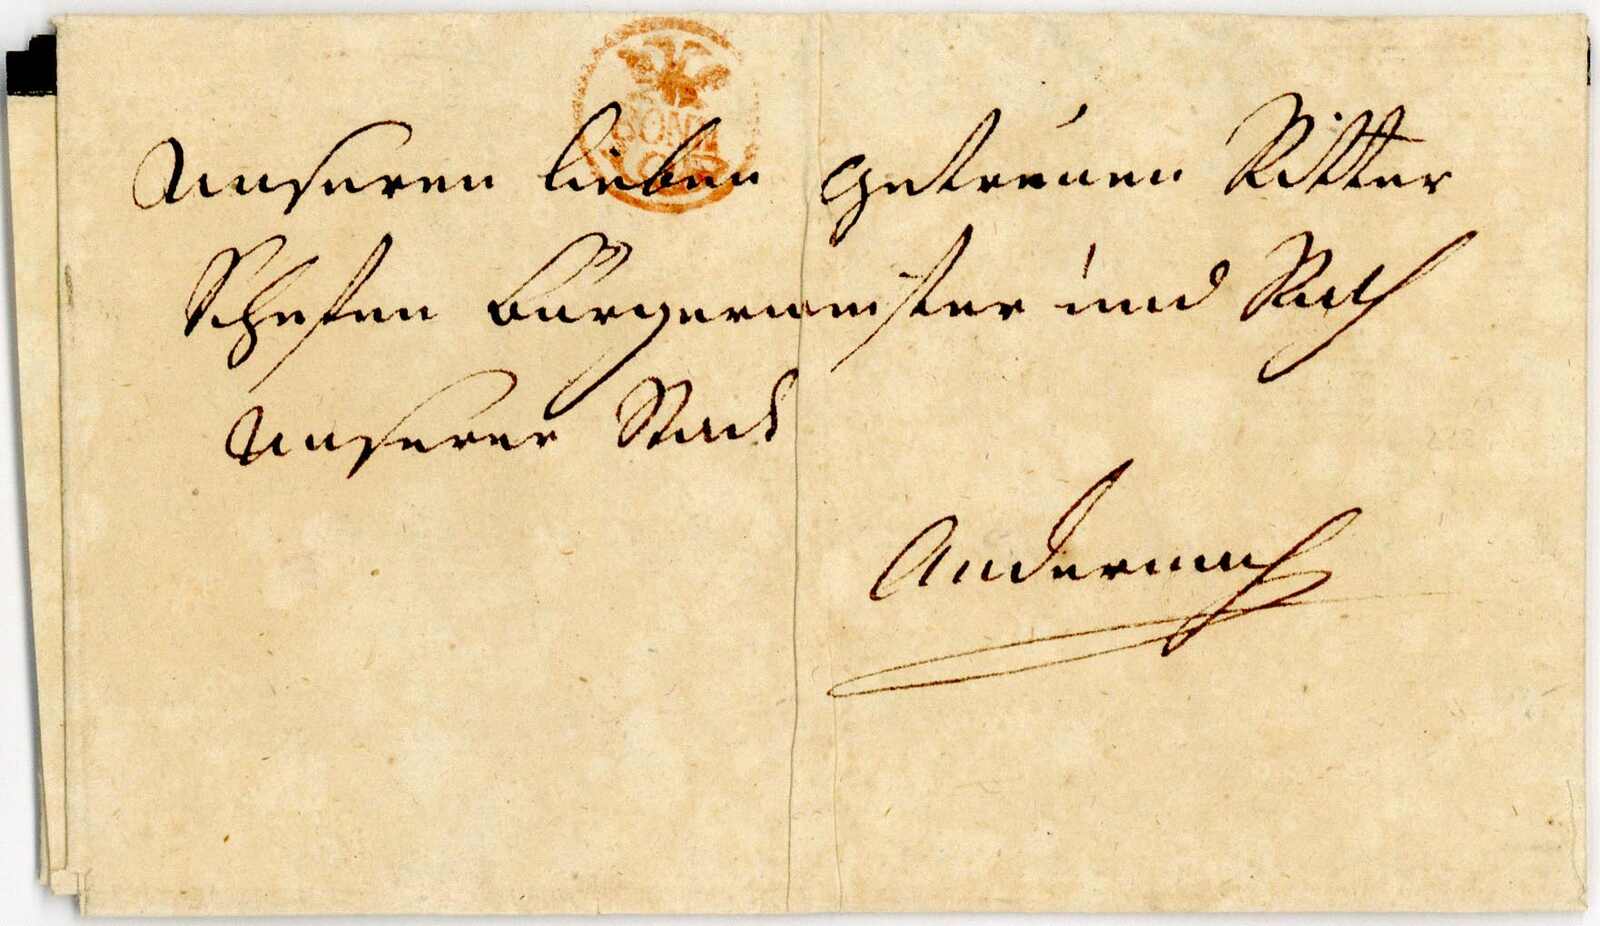 BONN
Unseren lieben getreuen Ritter
Schefen Bürgermeister und Rath
Unserer Stadt
Andernach